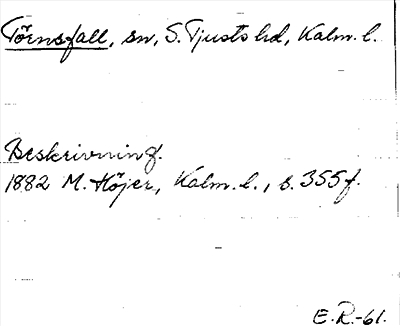 Törnsfall, sn, S. Tjusts hd, Kalm. l.
Beskrivning.
1882 M. Höjer, Kalm. l., s. 355 f.
E. R. -61.